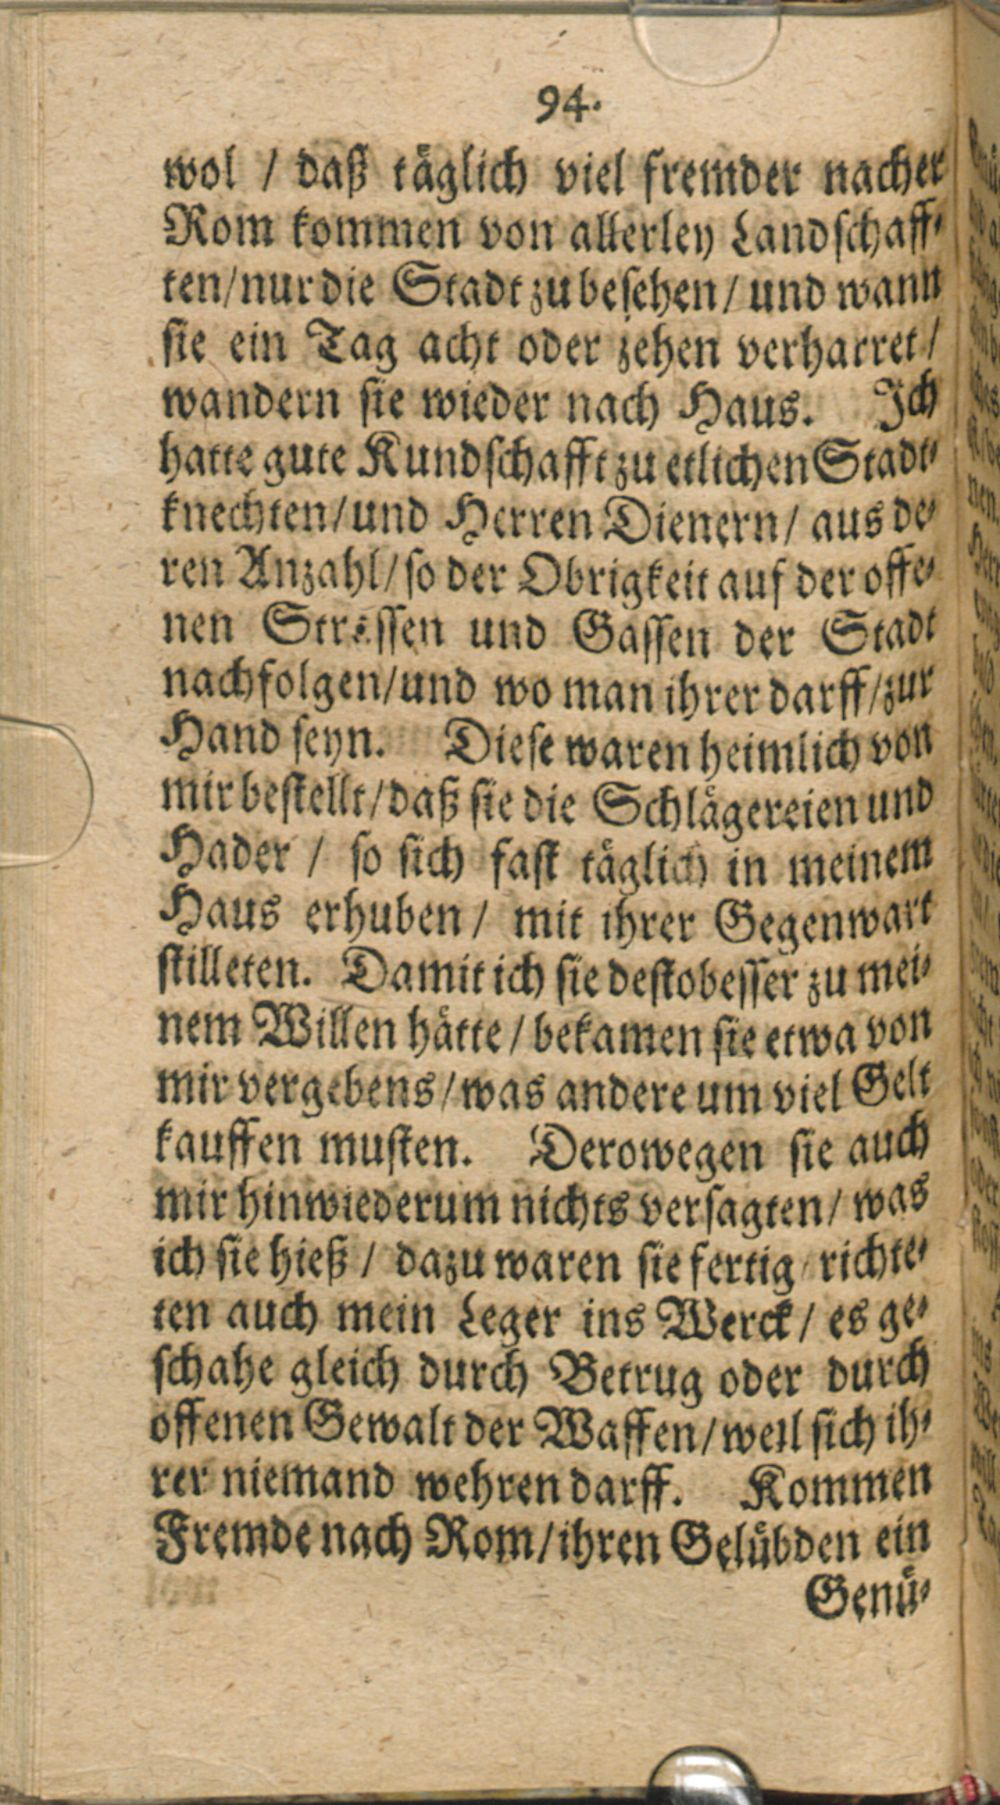 94.
wol / daß täglich viel fremder nacher
Rom kommen von allerley Landschaff-
ten/nur die Stadt zu besehen/ und wann
sie ein Tag acht oder zehen verharret /
wandern sie wieder nach Haus. Ich
hatte gute Kundschafft zu etlichen Stadt-
knechten/und Herren Dienern/ aus de-
ren Anzahl/so der Obrigkeit auf der offe-
nen Strassen und Gassen der Stadt
nachfolgen/und wo man ihrer darff/zur
Hand seyn. Diese waren heimlich von
mir bestellt/daß sie die Schlägereien und
Hader / so sich fast täglich in meinem
Haus erhuben/ mit ihrer Gegenwart
stilleten. Damit ich sie destobesser zu mei-
nem Willen hätte / bekamen sie etwa von
mir vergebens/was andere um viel Gelt
kauffen musten. Derowegen sie auch
mir hinwiederum nichts versagten/ was
ich sie hieß / dazu waren sie fertig/ richte-
ten auch mein Leger ins Werck/ es ge-
schahe gleich durch Betrug oder durch
offenen Gewalt der Waffen/weil sich ih-
rer niemand wehren darff. Kommen
Fremde nach Rom/ihren Gelübden ein
Genü-